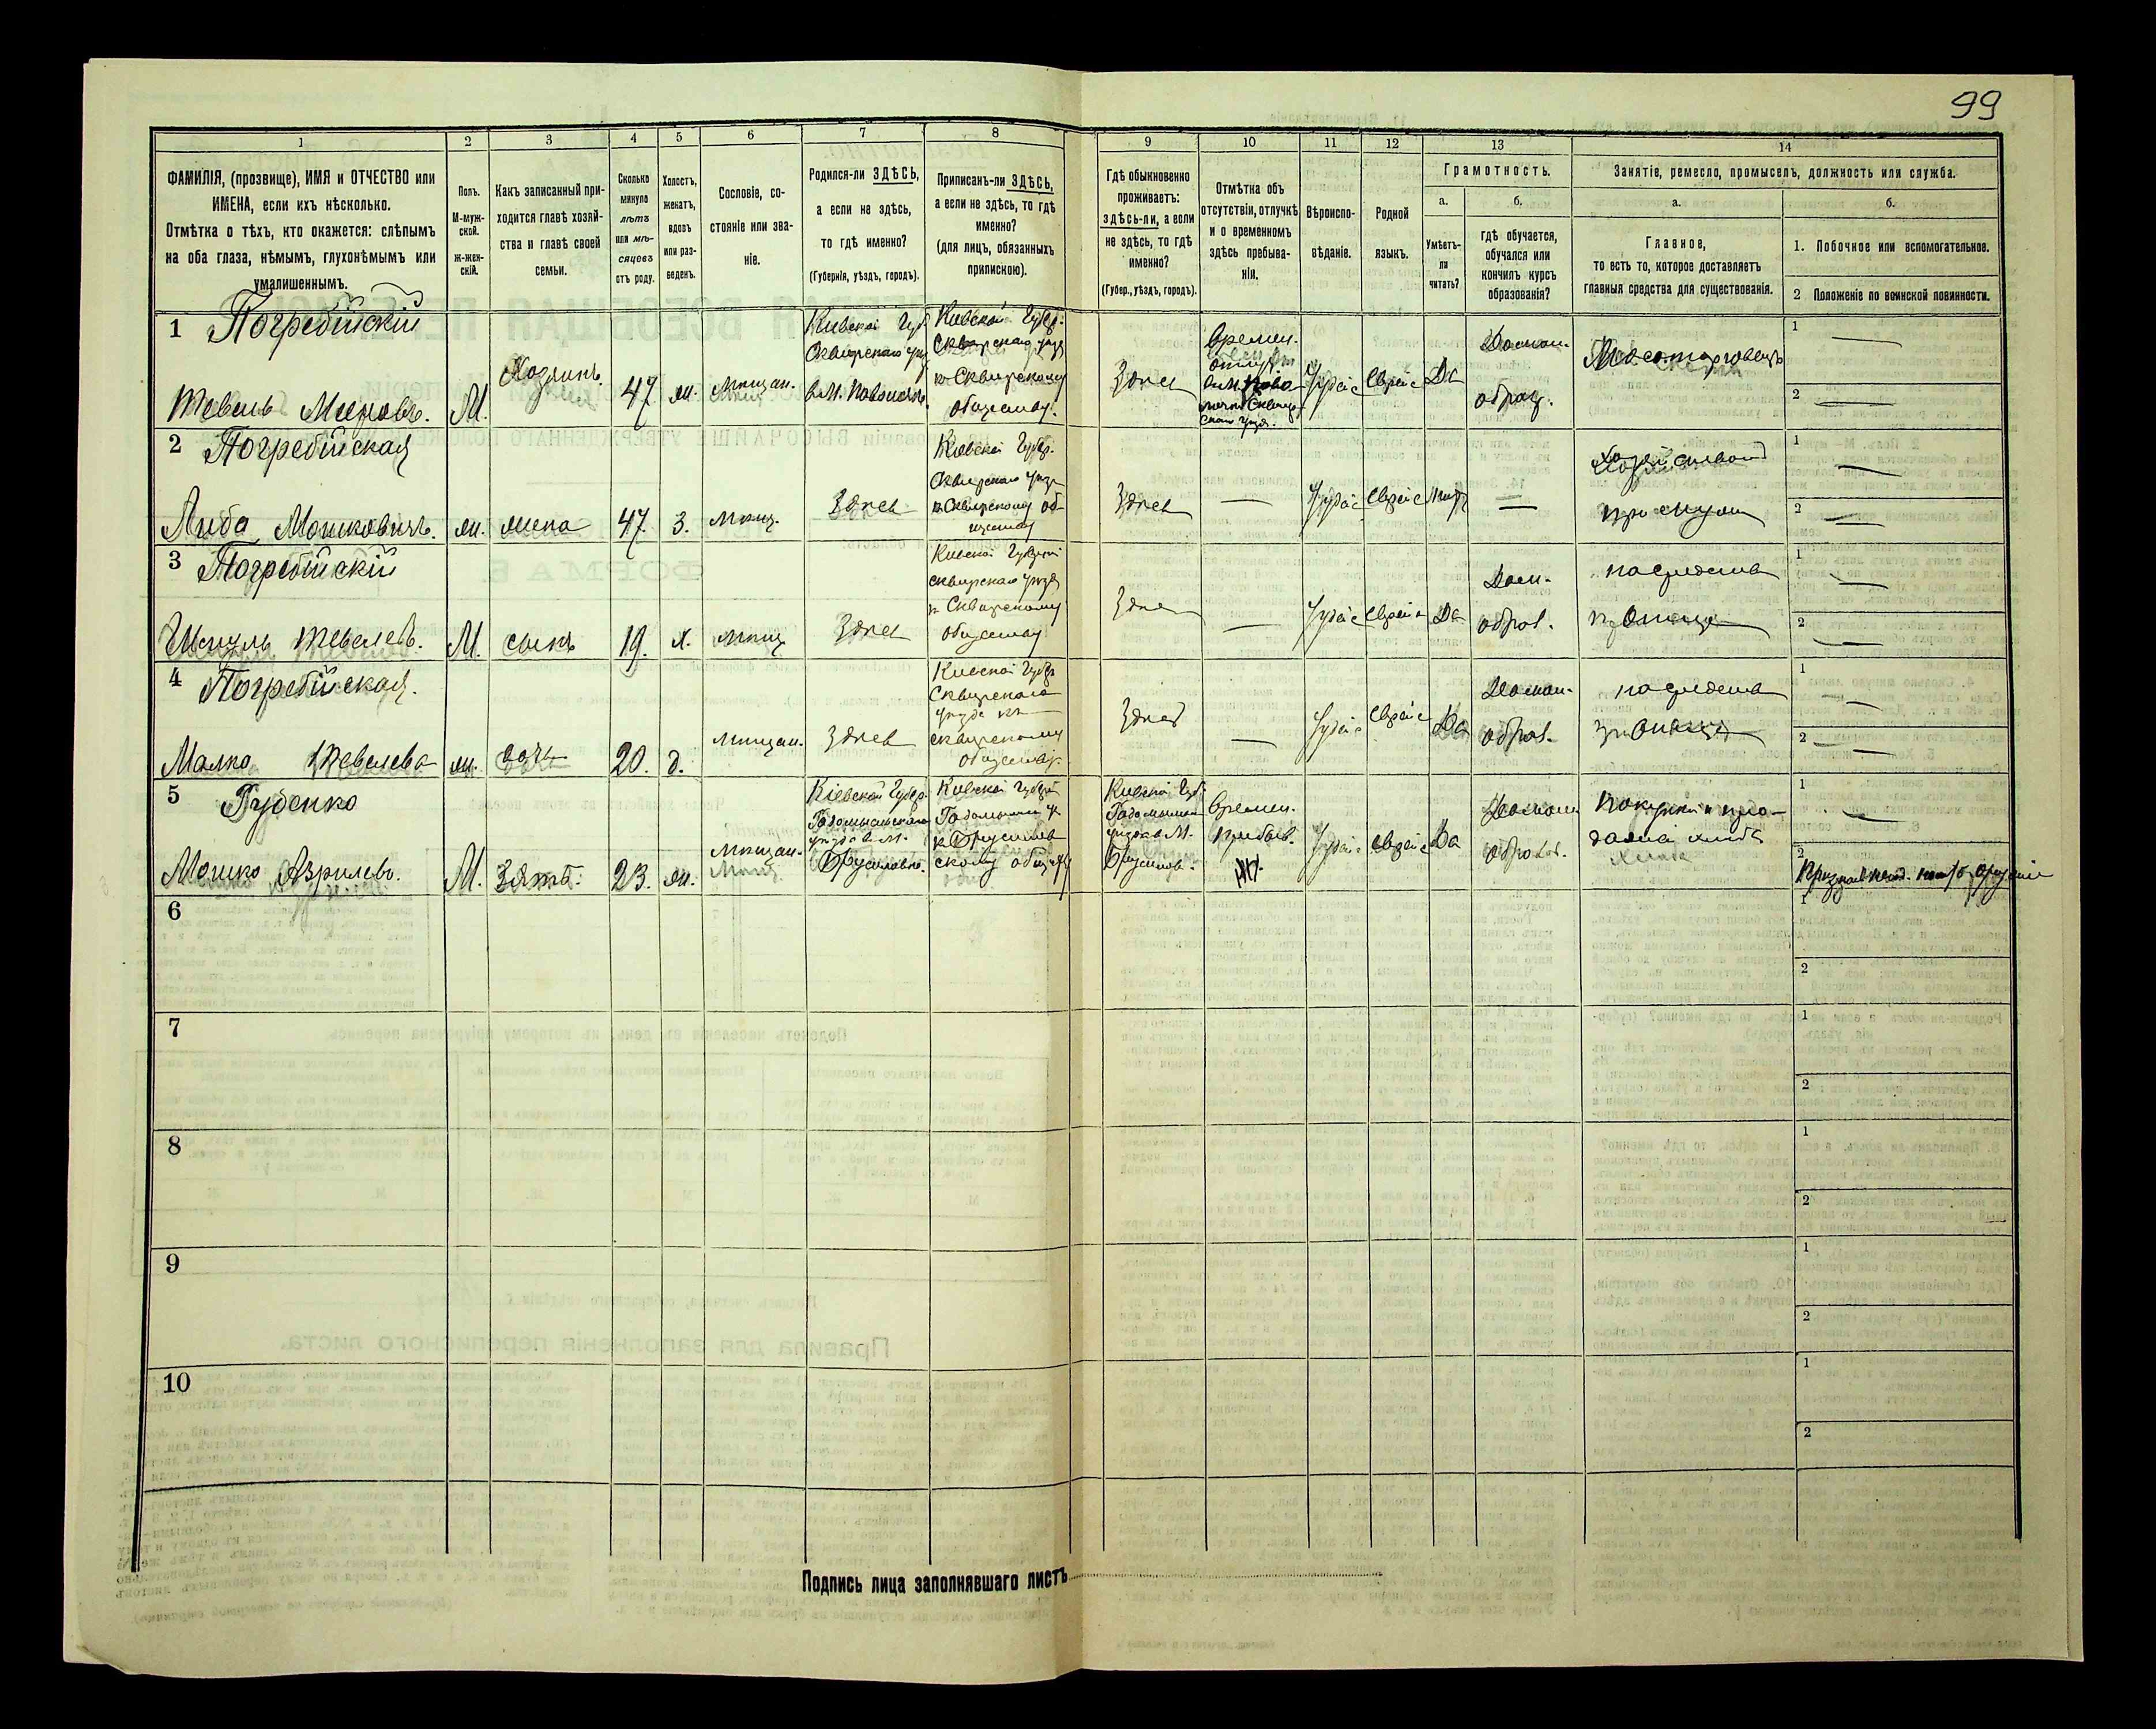 99
1
2
3
4
5
6
7
8
9
10
11
12
13
14
ФАМИЛІЯ, (прозвище), ИМЯ и ОТЧЕСТВО или
ИМЕНА, если ихъ нѣсколько.
Отмѣтка о тѣхъ, кто окажется: слѣпымъ
на оба глаза, нѣмымъ, глухонѣмымъ или
умалишеннымъ.
Полъ.
М-муж-
ской.
Ж-жен-
скій.
Какъ записанный при-
ходится главѣ хозяй-
ства и главѣ своей
семьи.
Сколько
минуло
лѣтъ
или мѣ-
сяцевъ
отъ роду.
Холостъ,
женатъ,
вдовъ
или раз-
веденъ.
Сословіе, со-
стояніе или зва-
ніе.
Родился-ли ЗДѢСЬ,
а если не здѣсь,
то гдѣ именно?
(Губернія, уѣздъ, городъ).
Приписанъ-ли ЗДѢСЬ,
а если не здѣсь, то гдѣ
именно?
(для лицъ, обязанныхъ
припискою).
Гдѣ обыкновенно
проживаетъ:
здѣсь-ли, а если
не здѣсь, то гдѣ
именно?
(Губер., уѣздъ, городъ).
Отмѣтка объ
отсутствіи, отлучкѣ
и о временномъ
здѣсь пребыва-
ніи.
Вѣроиспо-
вѣданіе.
Родной
языкъ.
Грамотность.
а.
Умѣетъ-
ли
читать?
б.
гдѣ обучается,
обучался или
кончилъ курсъ
образованія?
Занятіе, ремесло, промыселъ, должность или служба.
а.
Главное,
то есть то, которое доставляетъ
главныя средства для существованія.
б.
1. Побочное или вспомогательное.
2 Положеніе по воинской повинности.
1 Погребійскій
Тевель Мееровъ. М. Хозяинъ. 47 ж. мѣщан.
Кіевской Губ.
Сквирскаго уѣз
в М. Паволочь.
Кіевской Губер.
Сквирскаго уѣзда
къ Сквирскому
обществу.
Здѣсь
Времен.
Іудейс Еврейс Да
Домаш.
образ.
Мясоторговецъ
1
2
2 Погребійская
Либа Мошковичъ. ж. жена 47. З. мѣщ. Здѣсь
Кіевской Губер.
Сквирскаго уѣзд
къ Сквирскому об-
ществу
Здѣсь — Іудейс Еврейс нѣтъ —
при мужѣ
1
2
3 Погребійскій
Тевелевъ. М. сынъ 19. х. мѣщ Здѣсь
Кіевской Губерніи
Сквирскаго уѣзд
къ Сквирскому
обществу
Здѣсь — Іудейс Еврейс Да
Дом.
образ.
на средства
при отцѣ
1
2
4 Погребійская.
Малка Тевелева ж. дочь 20. д. мѣщан. Здѣсь
Кіевской Губер
Сквирскаго
уѣзда къ
Сквирскому
обществу.
Здѣсь — Іудейс Еврейс Да
Домаш.
образ.
на средства
при отцѣ
1
2
5 Губенко
Мошко Азрилевъ. М. Зять. 23. ж. мѣщан.
Кіевской Губер.
уѣзда в М.
Брусиловѣ.
Кіевской Губерн
къ Брусилов
скому общест
Кіевской Губ.
уѣзда в М.
Брусилов.
Времен.
Пребыв.
Іудейс Еврейс Да
Домаш
образов.
Покупка и про-
дажа хлѣба
1
2
6
1
2
7
1
2
8
1
2
9
1
2
10
1
2
Подпись лица заполнявшаго листъ